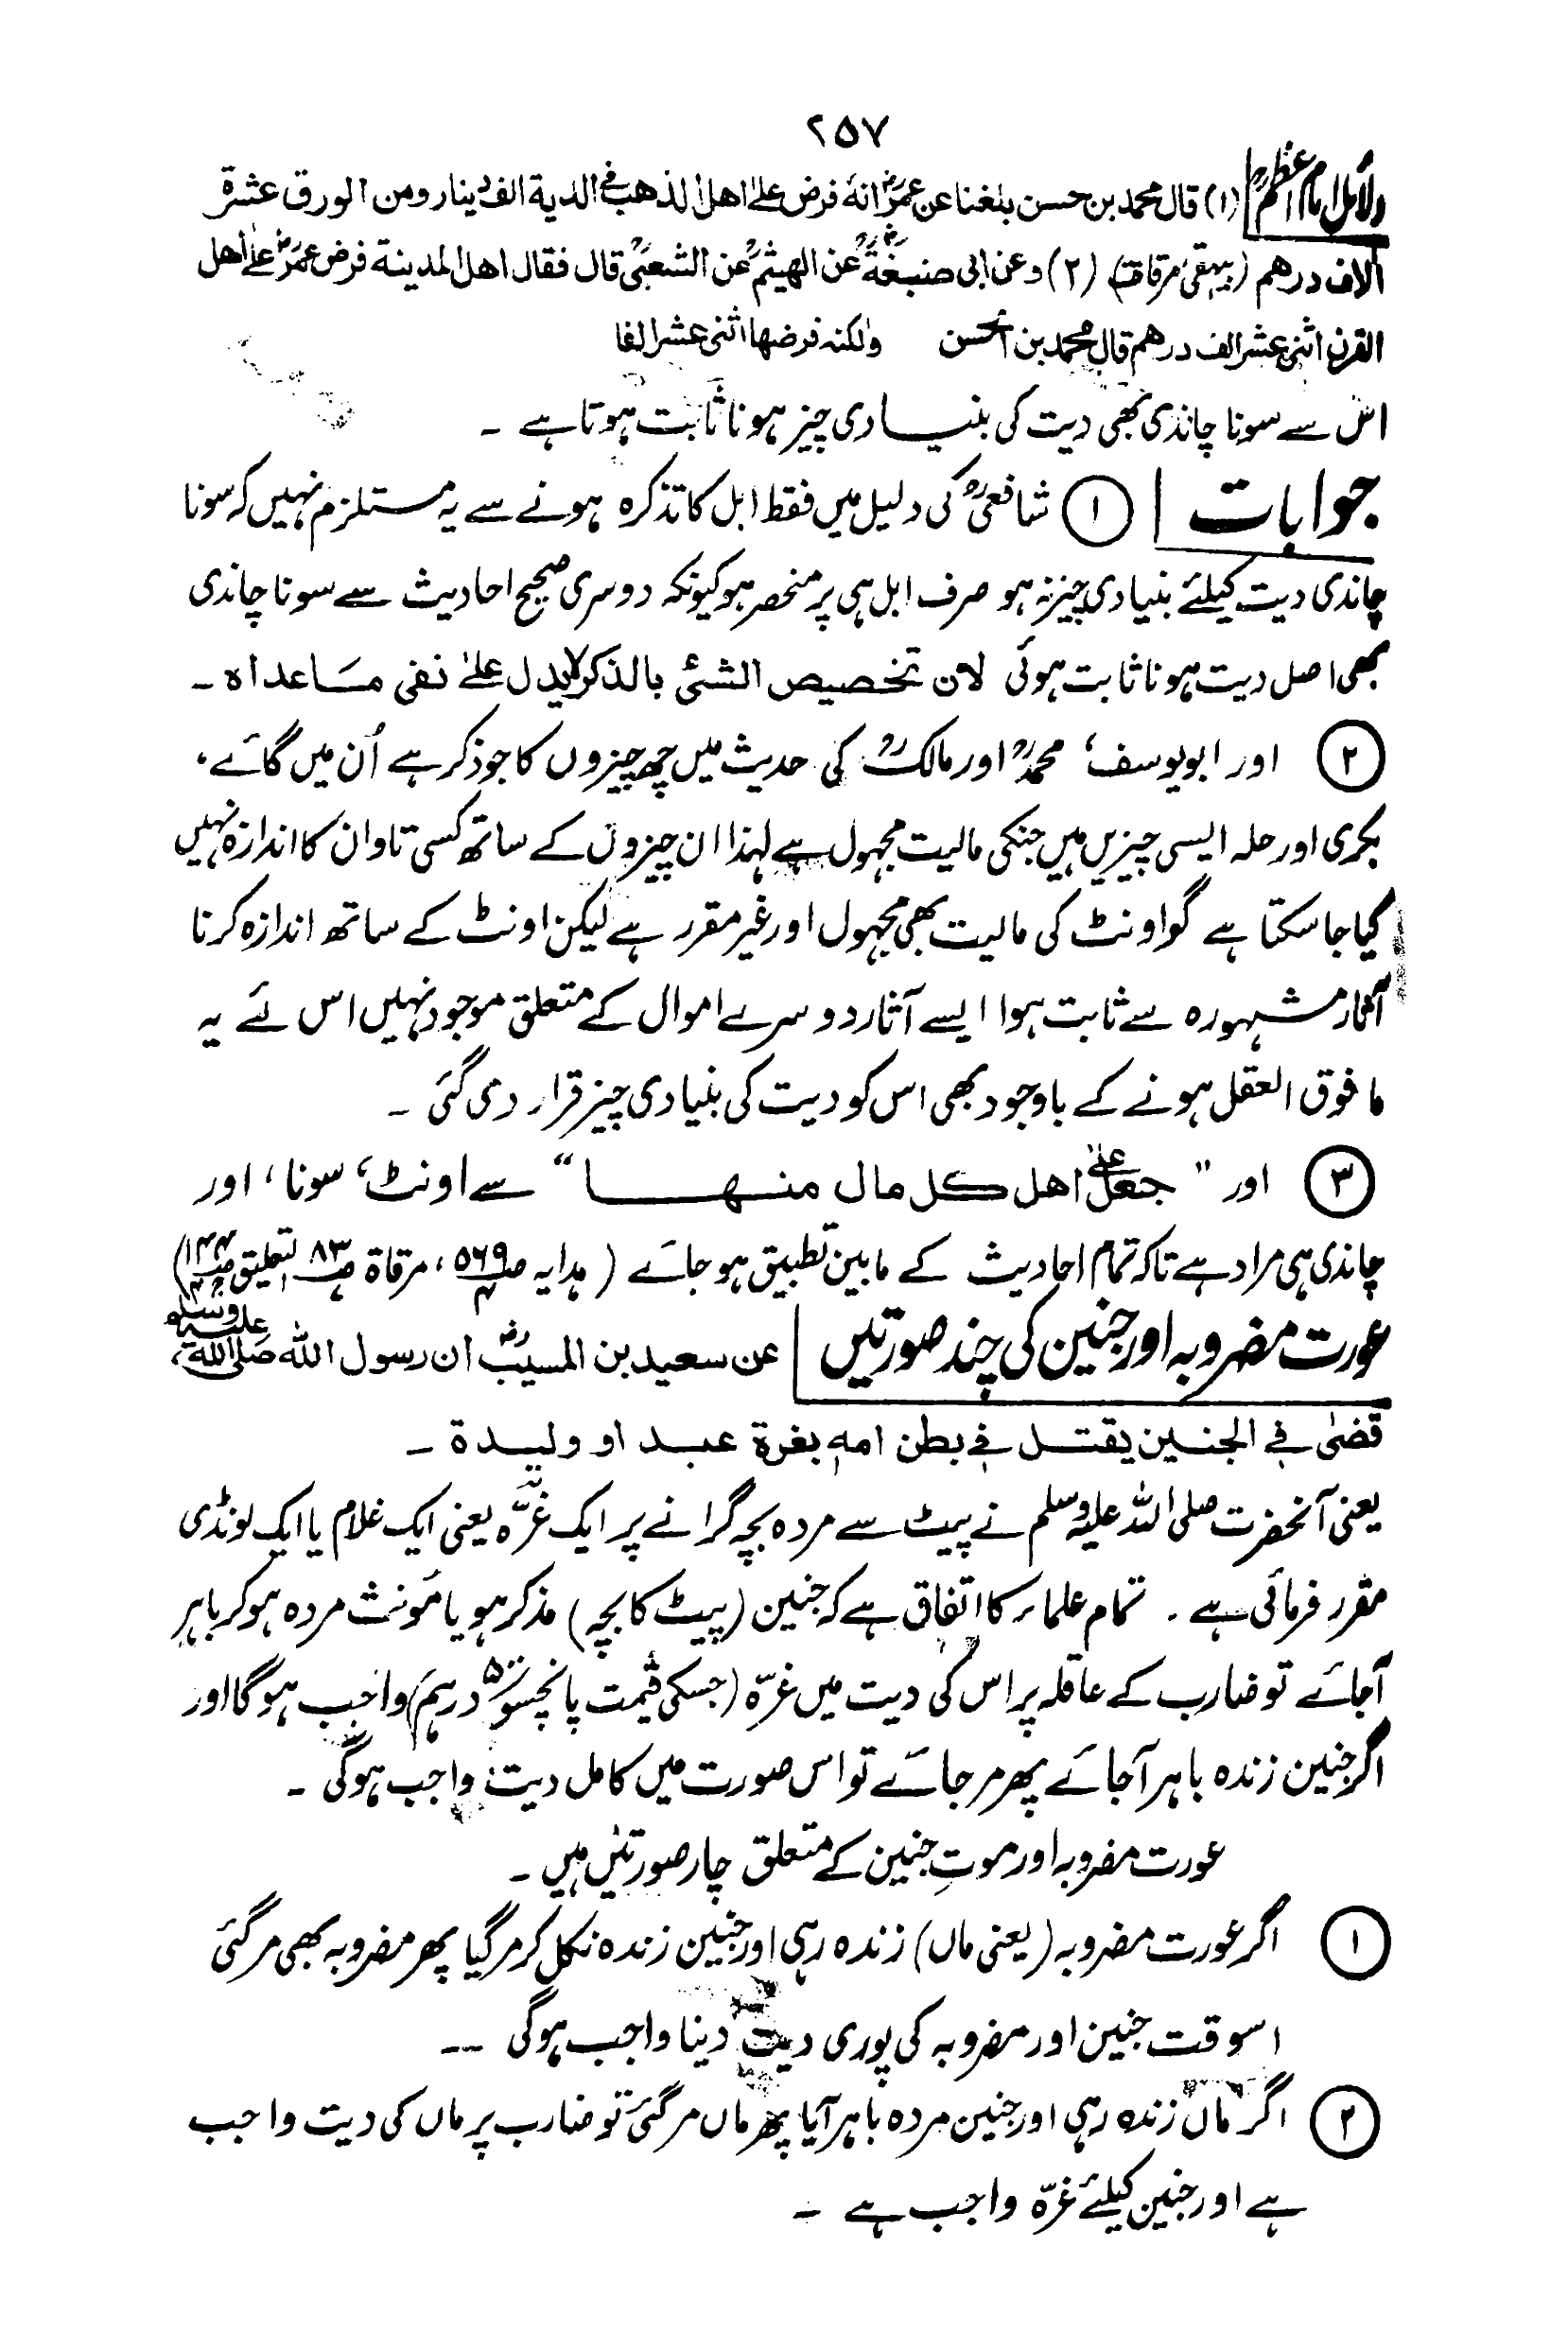 ۲۵۷
دلائل امام اعظمؒ (۱) قال محمد بن حسن بلغنا عن عمرؓ انہ فرض علیٰ اهل الذهب فی الدیة الف دینار ومن الورق عشرة
آلاف درهم (بیہقی، مرقاة) (۲) وعن ابی حنیفةؒ عن الهیثمؒ عن الشعبیؒ قال فقال اهل المدینة فرض عمرؓ علیٰ اهل
الورق اثنی عشر الف درهم قال محمد بن الحسن ولکنہ فرضها اثنی عشر الفا
اس سے سونا چاندی بھی دیت کی بنیادی چیز ہونا ثابت ہوتا ہے ۔
جوابات ① شافعیؒ کی دلیل میں فقط ابل کا تذکرہ ہونے سے یہ مستلزم نہیں کہ سونا
چاندی دیت کیلئے بنیادی چیز نہ ہو صرف ابل ہی پر منحصر ہو کیونکہ دوسری صحیح احادیث سے سونا چاندی
بھی اصل دیت ہونا ثابت ہوئی لان تخصیص الشئ بالذکر لایدل علیٰ نفی ماعداہ ۔
② اور ابویوسف، محمدؒ اور مالکؒ کی حدیث میں چھ چیزوں کا جو ذکر ہے اُن میں گائے،
بکری اور حلہ ایسی چیزیں ہیں جنکی مالیت مجہول ہے لہذا ان چیزوں کے ساتھ کسی تاوان کا اندازہ نہیں
کیا جا سکتا ہے گو اونٹ کی مالیت بھی مجہول اور غیر مقرر ہے لیکن اونٹ کے ساتھ اندازہ کرنا
آثار مشہورہ سے ثابت ہوا ایسے آثار دوسرے اموال کے متعلق موجود نہیں اس لئے یہ
ما فوق العقل ہونے کے باوجود بھی اس کو دیت کی بنیادی چیز قرار دی گئی ۔
③ اور " جعل علیٰ اهل کل مال منها " سے اونٹ، سونا، اور
چاندی ہی مراد ہے تاکہ تمام احادیث کے مابین تطبیق ہو جائے ( ہدایہ ص۵۶۹ ج۴، مرقاة ص۸۳ التعلیق ص۱۴۴ ج۴)
عورت مضروبہ اور جنین کی چند صورتیں عن سعید بن المسیبؓ ان رسول الله صلی اللہ علیہ وسلم
قضیٰ فی الجنین یقتل فی بطن امہ بغرة عبد او ولیدة ۔
یعنی آنحضرت صلی اللہ علیہ وسلم نے پیٹ سے مردہ بچہ گرانے پر ایک غرّہ یعنی ایک غلام یا ایک لونڈی
مقرر فرمائی ہے ۔ تمام علماء کا اتفاق ہے کہ جنین (پیٹ کا بچہ) مذکر ہو یا مؤنث مردہ ہو کر باہر
آجائے تو ضارب کے عاقلہ پر اس کی دیت میں غرّہ (جسکی قیمت پانچسو ۵۰۰ درہم) واجب ہوگا اور
اگر جنین زندہ باہر آجائے پھر مر جائے تو اس صورت میں کامل دیت واجب ہوگی ۔
عورت مضروبہ اور موتِ جنین کے متعلق چار صورتیں ہیں ۔
① اگر عورت مضروبہ (یعنی ماں) زندہ رہی اور جنین زندہ نکل کر مر گیا پھر مضروبہ بھی مر گئی
اسوقت جنین اور مضروبہ کی پوری دیت دینا واجب ہوگی ۔۔
② اگر ماں زندہ رہی اور جنین مردہ باہر آیا پھر ماں مر گئی تو ضارب پر ماں کی دیت واجب
ہے اور جنین کیلئے غرّہ واجب ہے ۔